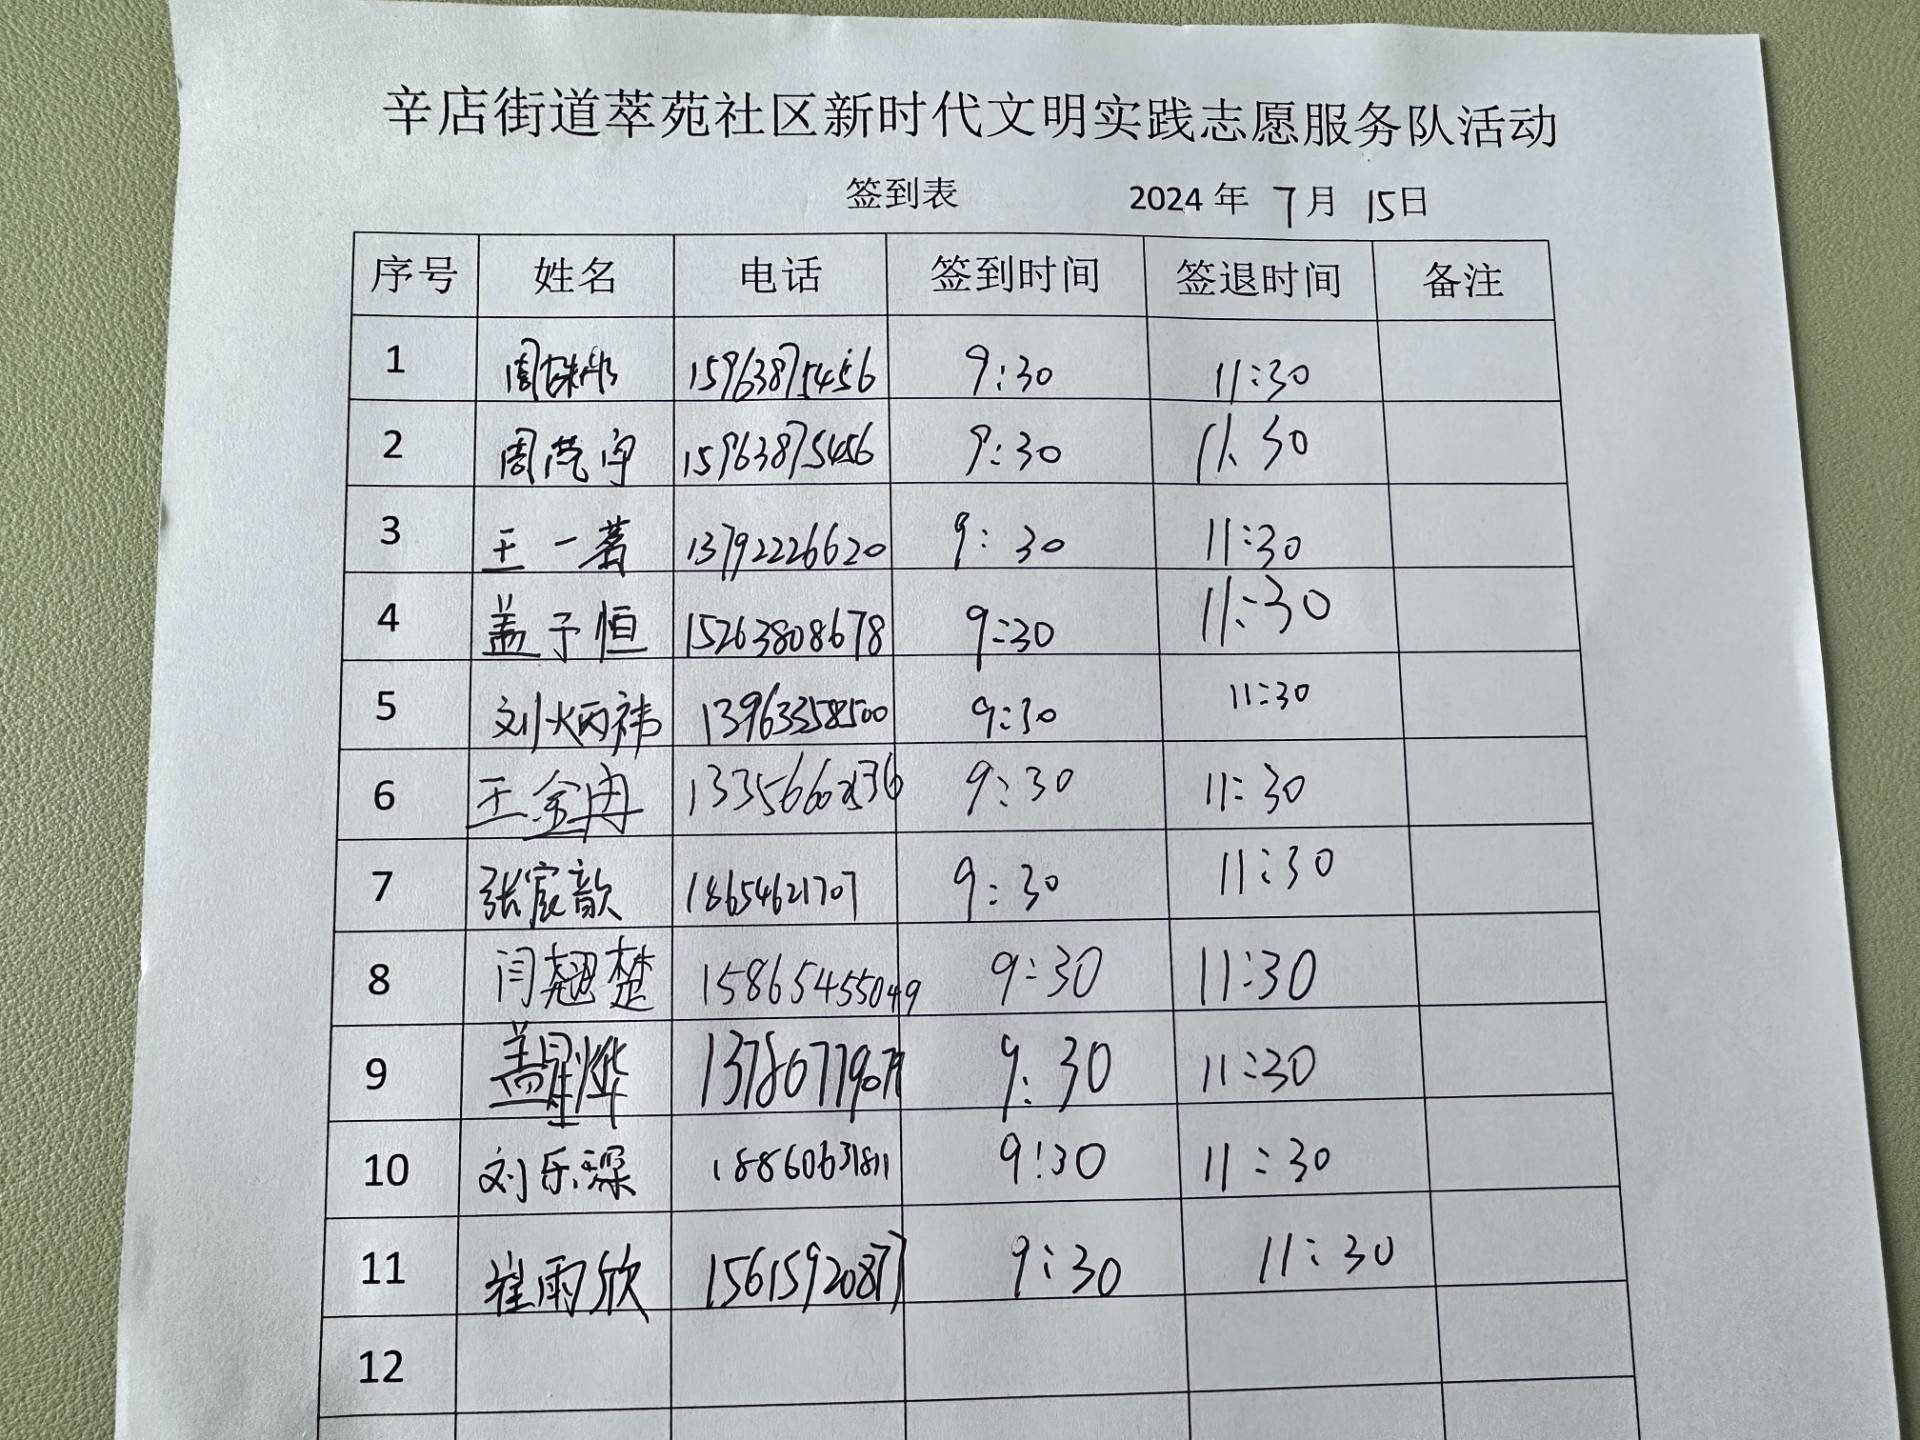 辛店街道萃苑社区新时代文明实践志愿服务队活动
签到表 2024 年 7 月 15 日
序号 姓名 电话 签到时间 签退时间 备注
1 15963875456 9:30 11:30
2 15963875456 9:30 11:30
3 王一著 13792226620 9:30 11:30
4 盖予恒 15263808678 9:30 11:30
5 刘炳祎 13963358500 9:30 11:30
6 王金冉 9:30 11:30
7 张宸歆 18654621707 9:30 11:30
8 闫翘楚 15865455049 9:30 11:30
9 盖星烨 9:30 11:30
10 刘乐深 18860631811 9:30 11:30
11 崔雨欣 15615920877 9:30 11:30
12